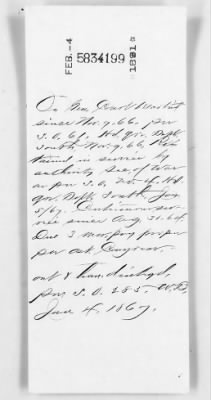 FEB.-4
5834199
1891
On
since Nov. 9. 66. per
S.O. 61. Hd qrs Dept
South Nov. 9, 66, Re
tained in service by
authority Sec. of War
as per S.O. No. Hd
qrs Dept. South Jany
5/67. Continuous ser
vice since Aug 31. 64.
Due 3 mos. pay proper
per act Congress.
out & hon. disch'gd,
per S.O. 285. W.D.
June 4. 1867.